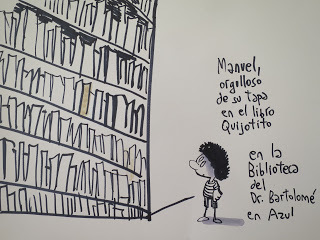 Manuel,
orgulloso
de su tapa
en el libro
Quijotito
en la
Biblioteca
del
Dr. Bartolomé
en Azul